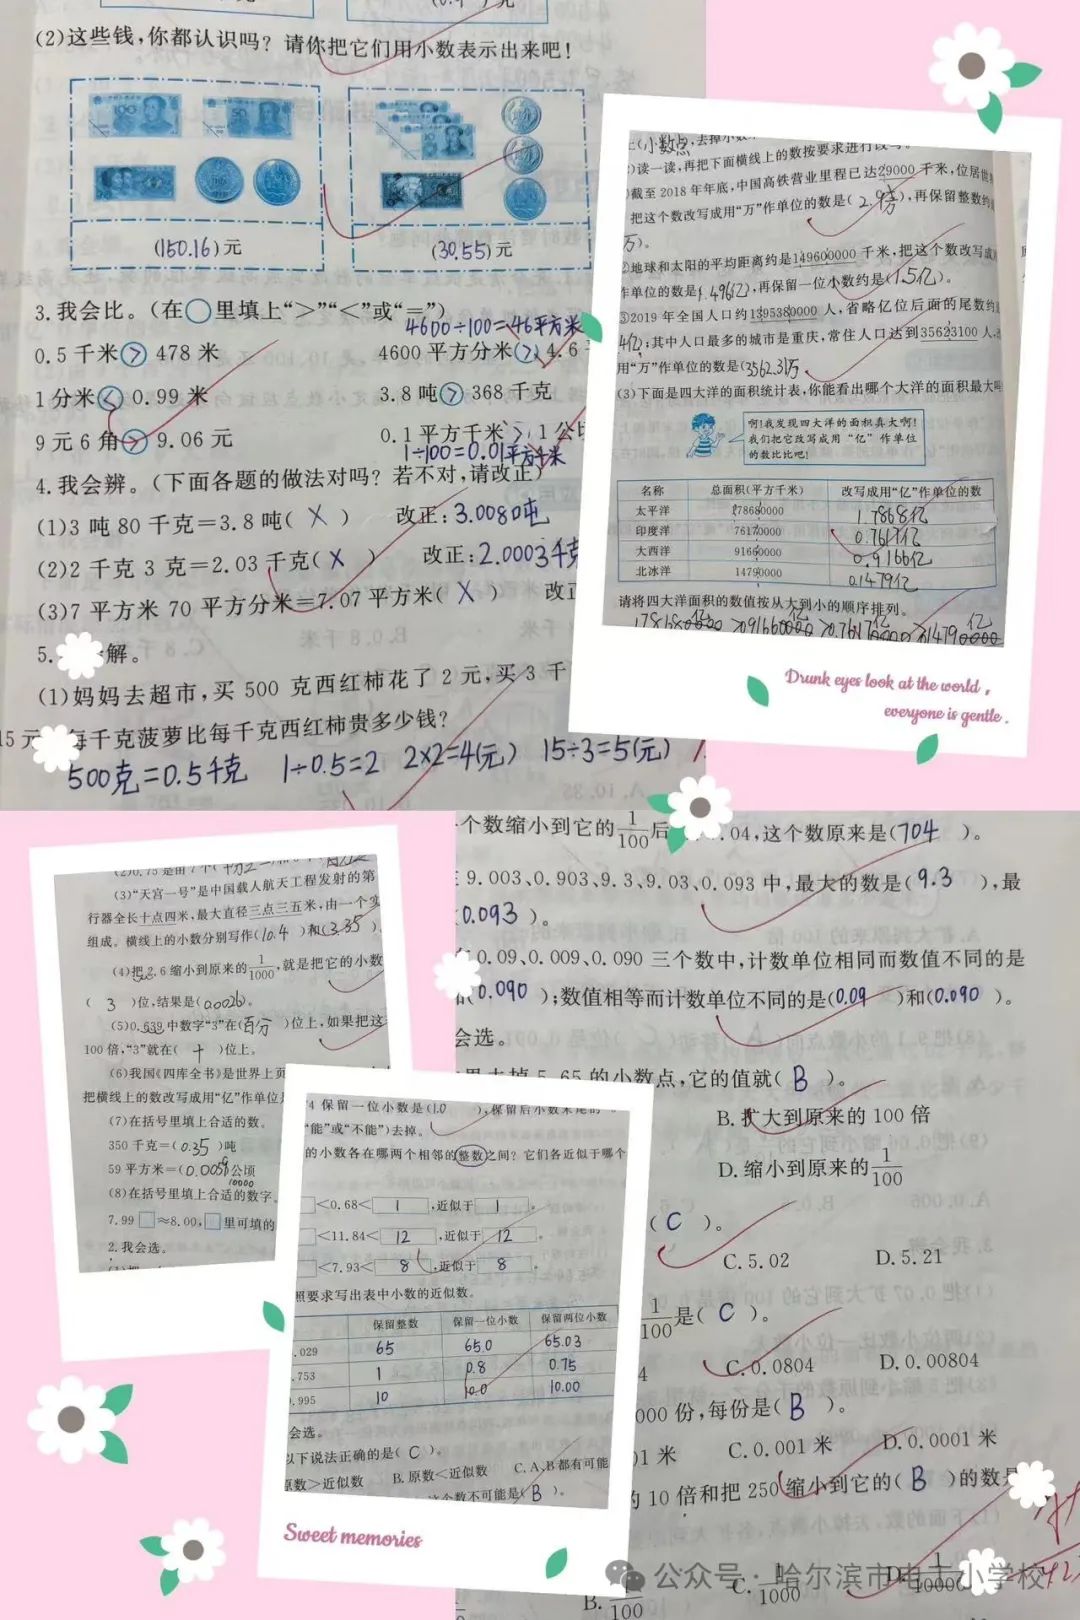 (2)这些钱,你都认识吗?请你把它们用小数表示出来吧!
(150.16)元
(30.55)元
3.我会比。(在○里填上“>”“<”或“=”)
4600÷100=46平方米
0.5千米>478米
4600平方分米>4.6
1分米<0.99米
3.8吨>368千克
9元6角>9.06元
0.1平方千米>1公顷
1÷100=0.01平方千米
4.我会辨。(下面各题的做法对吗?若不对,请改正)
(1)3吨80千克=3.8吨(X) 改正:3.0080吨
(2)2千克3克=2.03千克(X) 改正:2.0003千克
(3)7平方米70平方分米=7.07平方米(X) 改正
5.解。
(1)妈妈去超市,买500克西红柿花了2元,买3千
15元 每千克菠萝比每千克西红柿贵多少钱?
500克=0.5千克 1÷0.5=2 2×2=4(元) 15÷3=5(元)
(小数点,去掉小数
)读一读,再把下面横线上的数按要求进行改写。
截至2018年年底,中国高铁营业里程已达29000千米,位居世
把这个数改写成用“万”作单位的数是(2.9万),再保留整数约
万)。
②地球和太阳的平均距离约是149600000千米,把这个数改写成
作单位的数是1.496亿,再保留一位小数约是(1.5亿)。
③2019年全国人口约1395380000人,省略亿位后面的尾数约
4亿;其中人口最多的城市是重庆,常住人口达到35623100人,
用“万”作单位的数是(3562.31万
(3)下面是四大洋的面积统计表,你能看出哪个大洋的面积最大吗
啊!我发现四大洋的面积真大啊!
我们把它改写成用“亿”作单位
的数比比吧!
名称 总面积(平方千米) 改写成用“亿”作单位的数
太平洋 178680000 1.7868亿
印度洋 76170000 0.7617亿
大西洋 91660000 0.9166亿
北冰洋 14790000 0.1479亿
请将四大洋面积的数值按从大到小的顺序排列。
Drunk eyes look at the world ,
everyone is gentle .
(3)“天宫一号”是中国载人航天工程发射的第
行器全长十点四米,最大直径三点三五米,由一个实
组成。横线上的小数分别写作(10.4)和(3.35)
(4)把2.6缩小到原来的1/1000,就是把它的小数
(3)位,结果是(0.0026)。
(5)0.639中数字“3”在(百分)位上,如果把这
100倍,“3”就在(十)位上。
(6)我国《四库全书》是世界上页
把横线上的数改写成用“亿”作单位是
(7)在括号里填上合适的数。
350千克=(0.35)吨
59平方米=(0.0059)公顷
10000
(8)在括号里填上合适的数字。
7.99□≈8.00,□里可填的
2.我会选。
个数缩小到它的1/100后 .04,这个数原来是(704)。
9.003、0.903、9.3、9.03、0.093中,最大的数是(9.3),最
(0.093)。
0.09、0.009、0.090三个数中,计数单位相同而数值不同的是
(0.090);数值相等而计数单位不同的是(0.09)和(0.090)。
会选。
去掉5.65的小数点,它的值就(B)。
B.扩大到原来的100倍
D.缩小到原来的1/100
(C)。
C.5.02 D.5.21
1/100是(C)。
C.0.0804 D.0.00804
000份,每份是(B)。
01米 C.0.001米 D.0.0001米
的10倍和把250缩小到它的(B)的数是
B.1/100 C.1/1000 D.1/10000
4保留一位小数是(1.0),保留后小数末尾的
“能”或“不能”)去掉。
的小数各在哪两个相邻的整数之间?它们各近似于哪个
<0.68<1,近似于1。
<11.84<12,近似于12。
<7.93<8,近似于8。
照要求写出表中小数的近似数。
保留整数 保留一位小数 保留两位小数
.029 65 65.0 65.03
.753 1 0.8 0.75
.995 10 10.0 10.00
会选。
以下说法正确的是(C)。
原数>近似数 B.原数<近似数 C.A、B都有可能
这个数不可能是(B)。
Sweet memories
公众号·哈尔滨市电工小学校